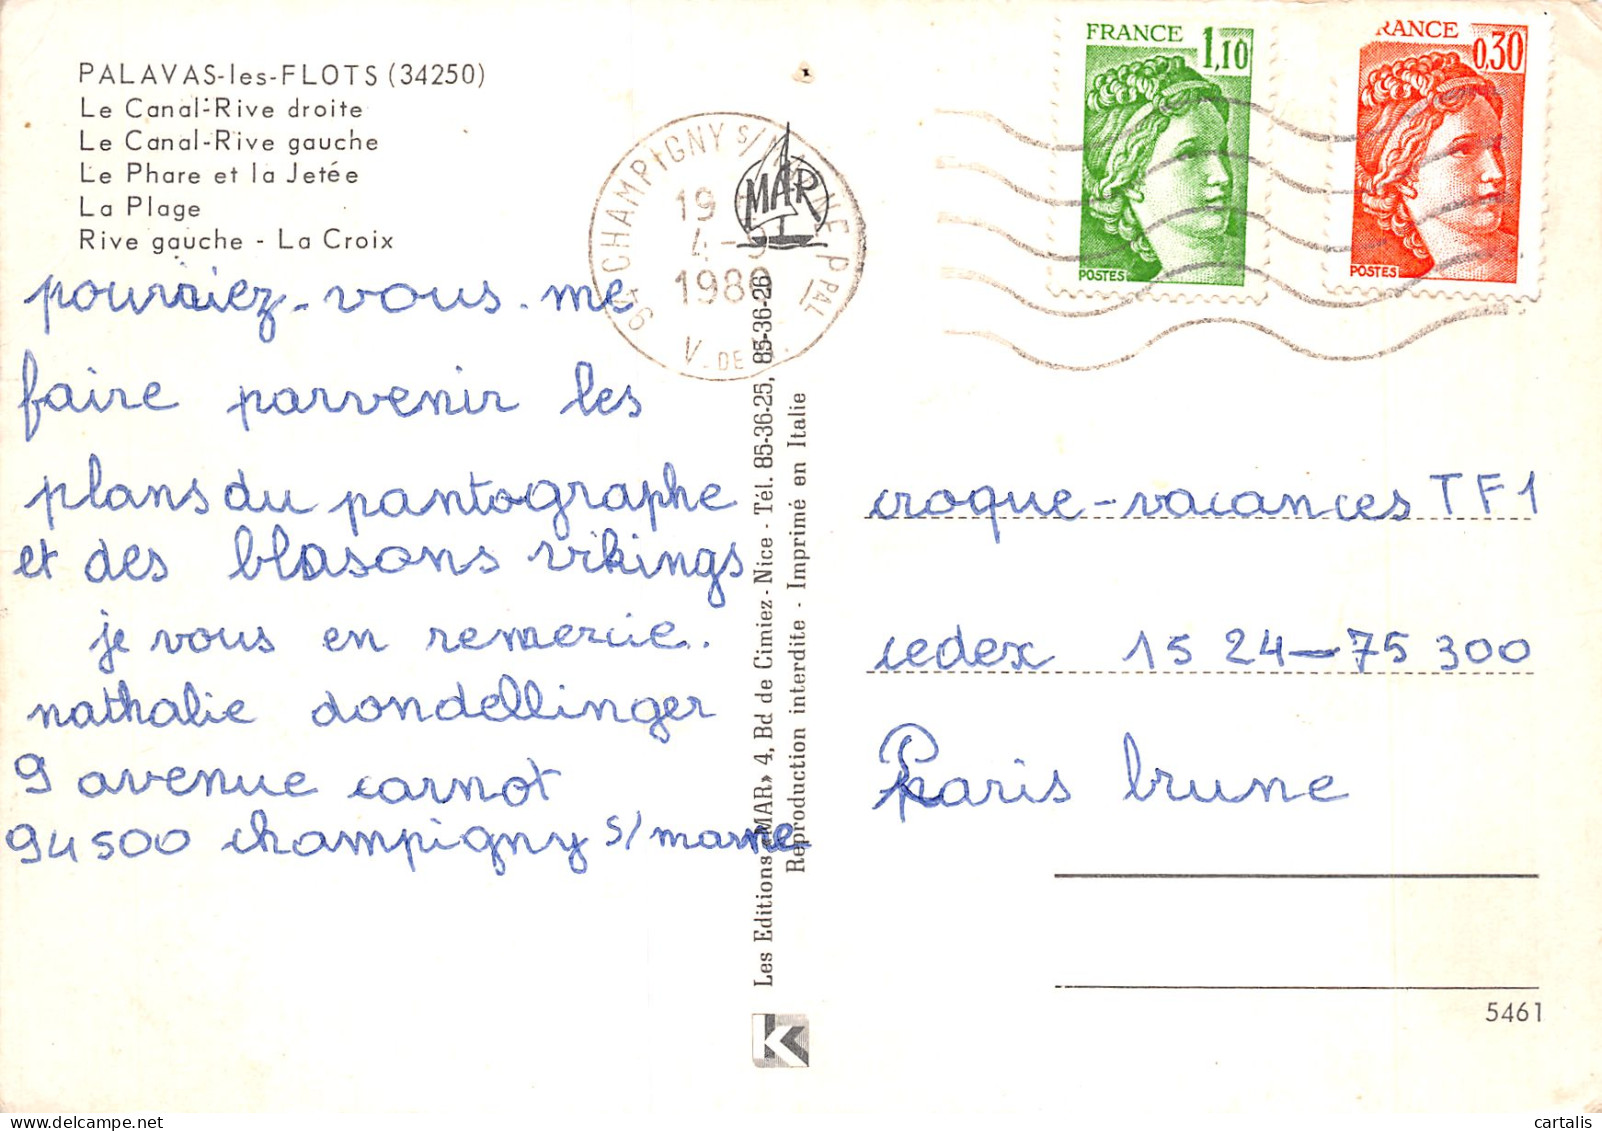 PALAVAS-les-FLOTS (34250)
Le Canal-Rive droite
Le Canal-Rive gauche
Le Phare et la Jetée
La Plage
Rive gauche - La Croix
pourriez-vous-me
faire parvenir les
plans du pantographe
et des blasons vikings
je vous en remercie..
nathalie dondellinger
9 avenue carnot
94500 champigny s/marne
94 CHAMPIGNY s/ MARNE PPAL
19
4-9
1980
V-DE-M.
MAR
Les Editions «MAR» 4, Bd de Cimiez - Nice - Tél. 85-36-25, 85-36-26
Reproduction interdite - Imprimé en Italie
K
FRANCE
1,10
POSTES
RANCE
0,30
POSTES
croque-vacances TF1
cedex 15 24-75 300
Paris brune
5461
cartalis
delcampe.net